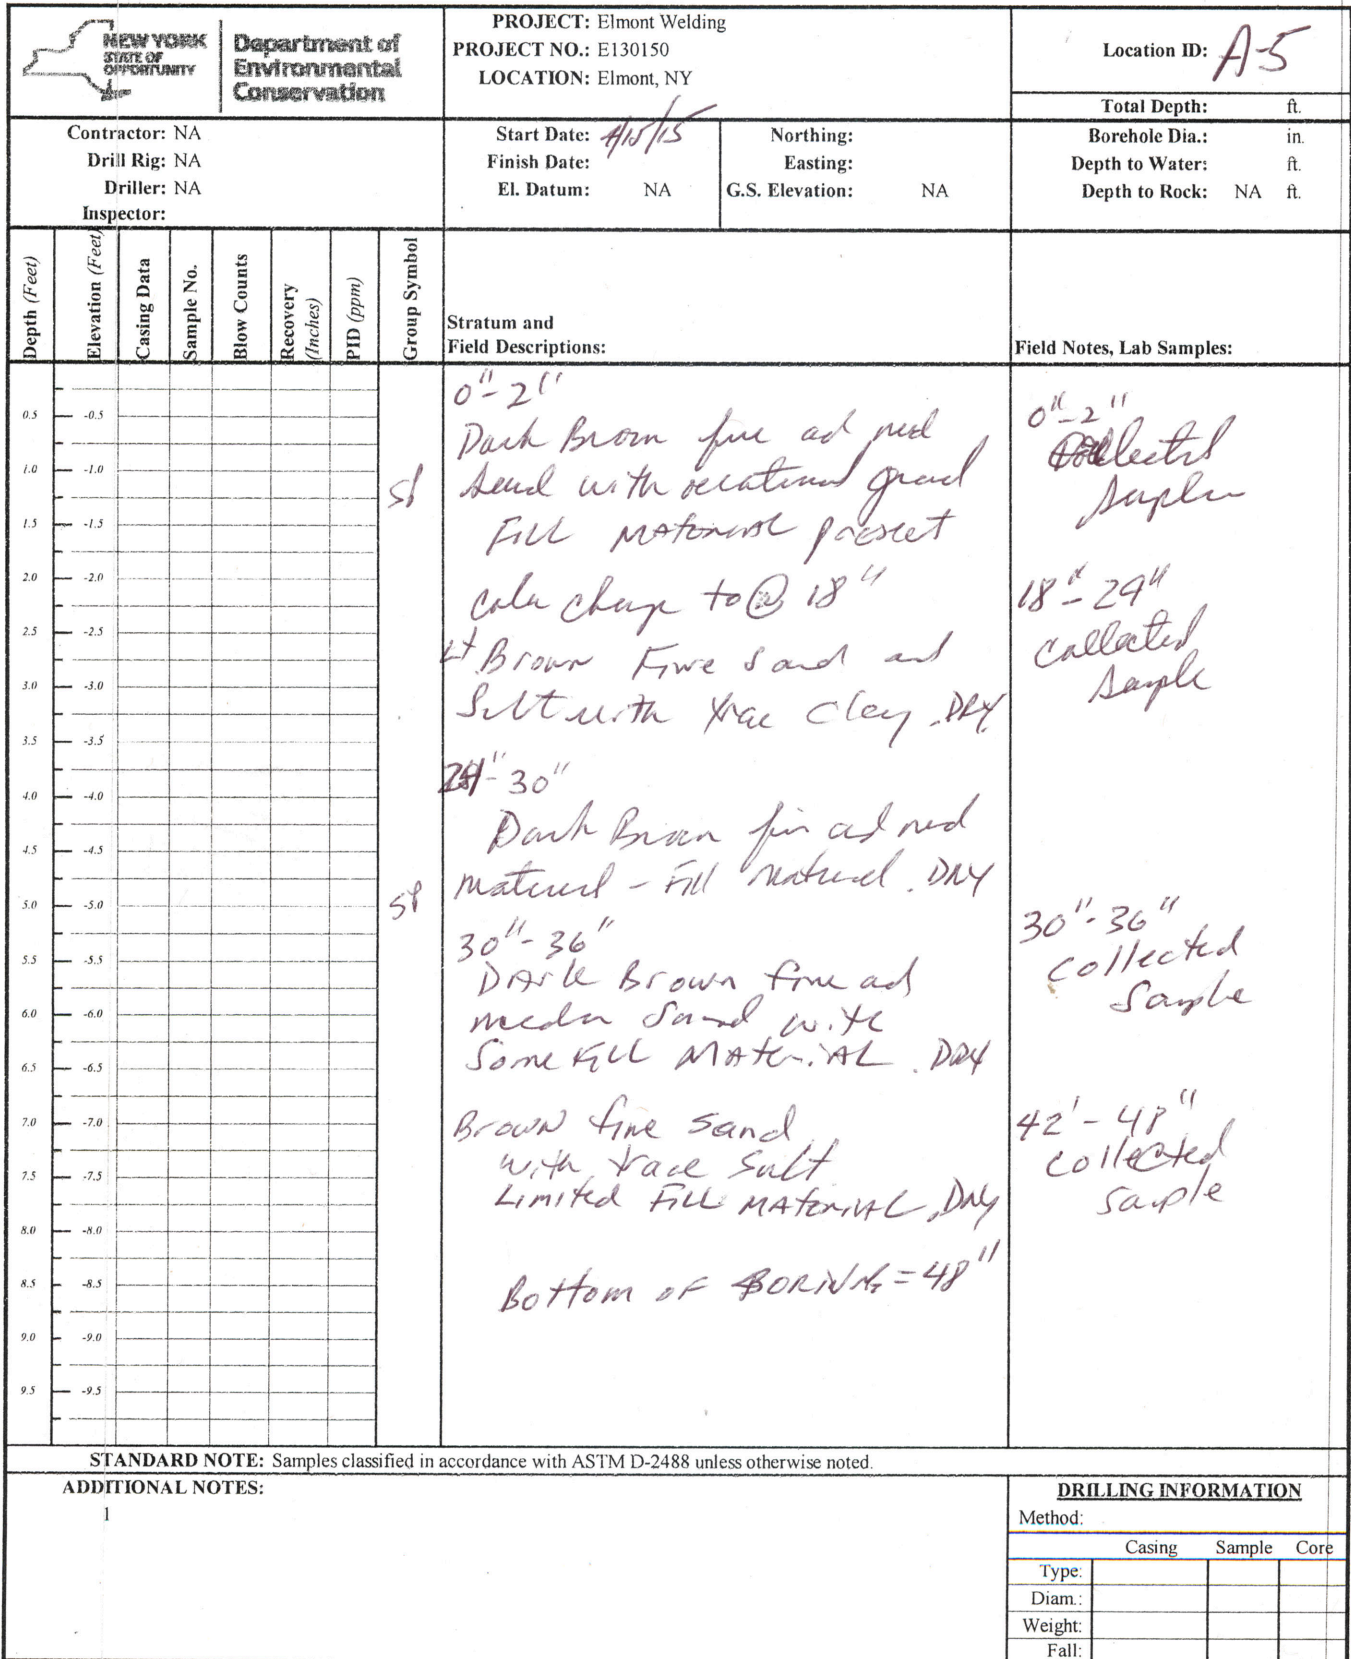 NEW YORK
STATE OF
OPPORTUNITY
Department of
Environmental
Conservation
PROJECT: Elmont Welding
PROJECT NO.: E130150
LOCATION: Elmont, NY
Location ID: A-5
Total Depth: ft.
Contractor: NA
Drill Rig: NA
Driller: NA
Inspector:
Start Date: 4/15/15
Finish Date:
El. Datum: NA
Northing:
Easting:
G.S. Elevation: NA
Borehole Dia.: in.
Depth to Water: ft.
Depth to Rock: NA ft.
Depth (Feet)
Elevation (Feet)
Casing Data
Sample No.
Blow Counts
Recovery
(Inches)
PID (ppm)
Group Symbol
Stratum and
Field Descriptions:
Field Notes, Lab Samples:
0.5 -0.5
1.0 -1.0
1.5 -1.5
2.0 -2.0
2.5 -2.5
3.0 -3.0
3.5 -3.5
4.0 -4.0
4.5 -4.5
5.0 -5.0
5.5 -5.5
6.0 -6.0
6.5 -6.5
7.0 -7.0
7.5 -7.5
8.0 -8.0
8.5 -8.5
9.0 -9.0
9.5 -9.5
SP
SP
0"-2"
Dark Brown fine ad med
sand with occational gravel
FILL MATERIAL present
color change to @ 18"
Lt Brown Fine Sand and
Silt with trace Clay. DRY
-30"
Dark Brown fin ad med
material - Fill material. DRY
30"-36"
DArk Brown fine ad
Sand with
Some Fill MAteriAL. DRY
Brown fine Sand
with trace Silt
Limited FILL MATERIAL, DRY
Bottom OF BORING = 48"
0"-2"
Collected
Sample
18"-24"
Collected
Sample
30"-36"
Collected
Sample
42'-48"
collected
sample
STANDARD NOTE: Samples classified in accordance with ASTM D-2488 unless otherwise noted.
ADDITIONAL NOTES:
1
DRILLING INFORMATION
Method:
Casing Sample Core
Type:
Diam.:
Weight:
Fall: